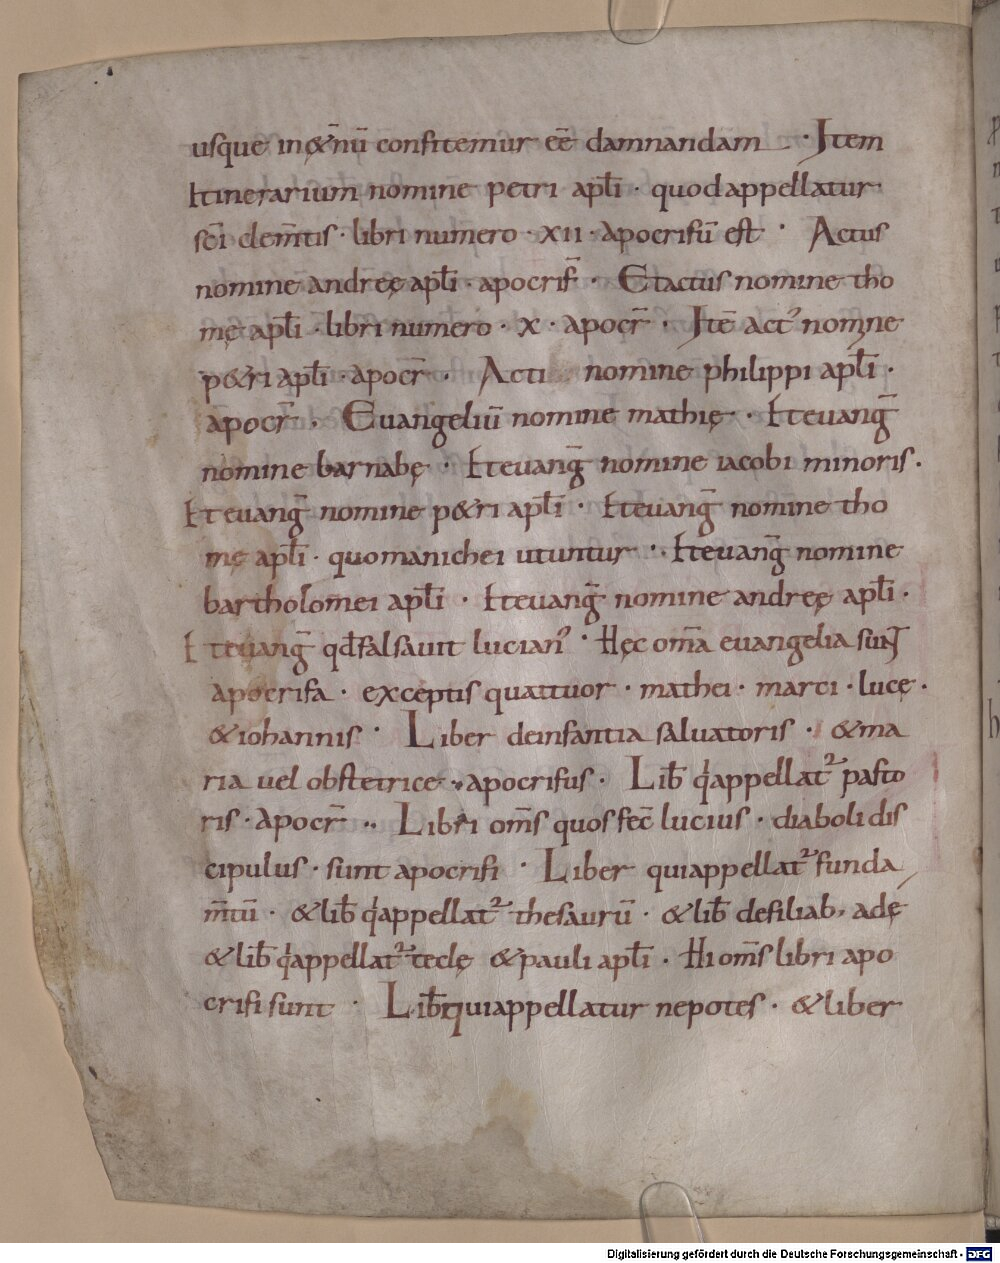 usque in&̄nū confitemur eē damnandam · Item
Itinerarium nomine petri apłi · quod appellatur
sc̄i clem̄tis · libri numero · xii · apocrifū est · Actus
nomine andreę apłi · apocrif̄ · Et actus nomine tho
mę apłi · libri numero · x · apocr̄ · Itē act' nomine
p&ri apłi · apocr̄ · Acti nomine philippi apłi ·
apocr̄ · Euangeliū nomine mathię · It euanḡ
nomine barnabę · It euanḡ nomine iacobi minoris ·
It euanḡ nomine p&ri apłi · It euanḡ nomine tho
mę apłi · quo manichei utuntur · It euanḡ nomine
bartholomei apłi · It euanḡ nomine andreę apłi ·
It euanḡ qđ falsauit lucian' · Hęc om̄a euangelia sunt
apocrifa · exceptis quattuor · mathei · marci · lucę ·
& iohannis · Liber de infantia saluatoris · & ma
ria uel obstetrice · apocrifus · Lib̄ q̇ appellat᷑ pasto
ris · apocr̄ · Libri om̄s quos fec̄ lucius · diaboli dis
cipulus · sunt apocrifi · Liber qui appellat᷑ funda
m̄tū · & lib̄ q̇ appellat᷑ thesaurū · & lib̄ de filiab, adę
& lib̄ q̇ appellat᷑ teclę & pauli apłi · Hi om̄s libri apo
crifi sunt · Lib̄ qui appellatur nepotes · & liber
Digitalisierung gefördert durch die Deutsche Forschungsgemeinschaft - DFG